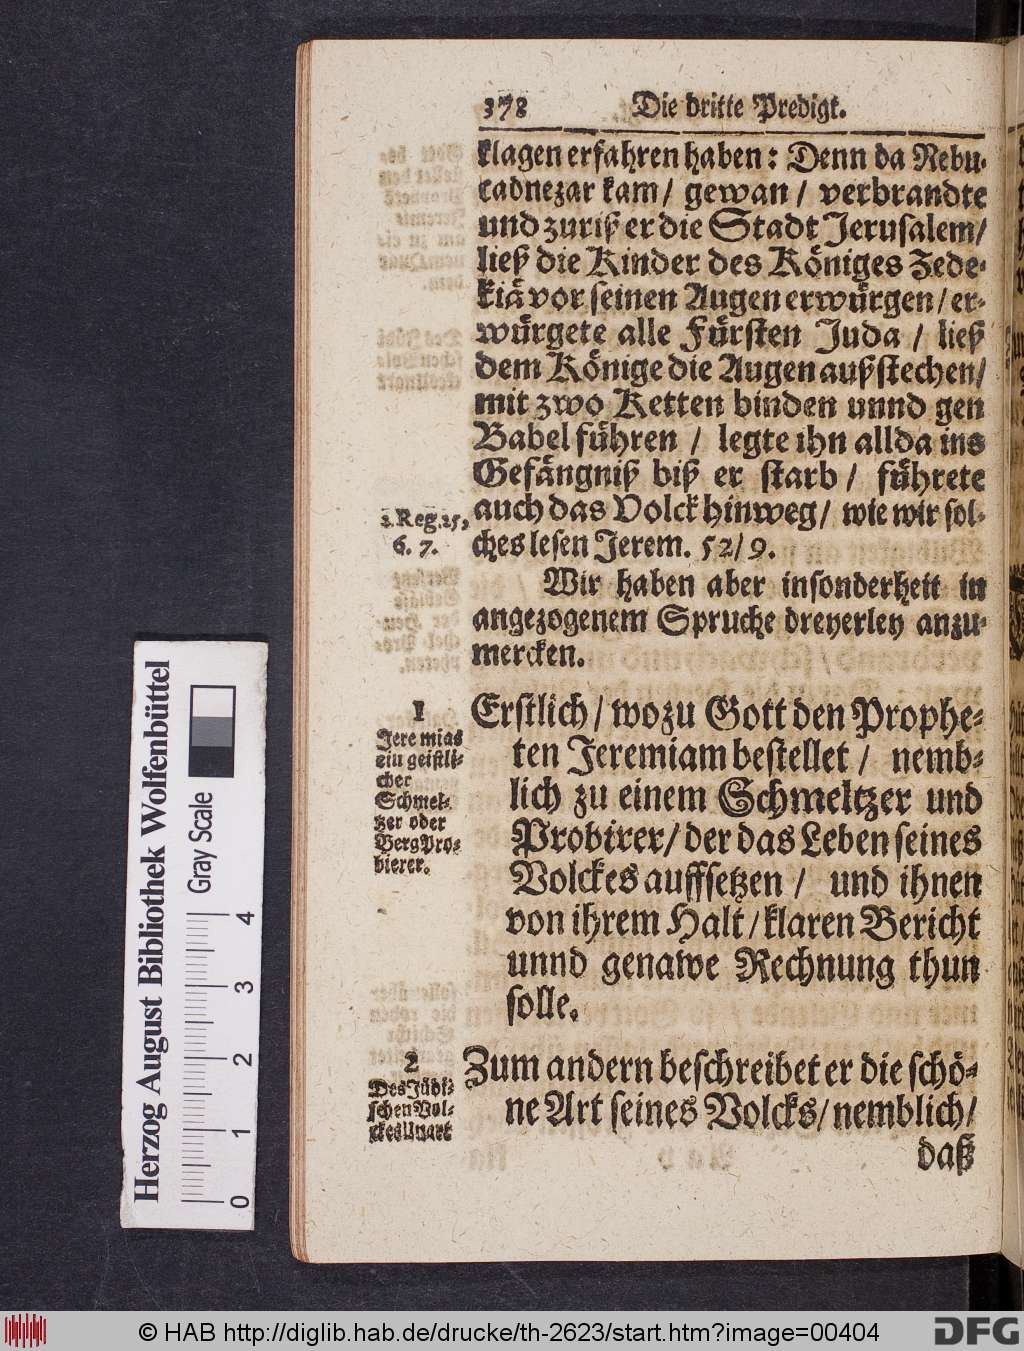 378 Die dritte Predigt.
klagen erfahren haben: Denn da Nebu-
cadnezar kam/ gewan/ verbrandte
und zuriß er die Stadt Jerusalem/
ließ die Kinder des Königes Zede-
kiä vor seinen Augen erwürgen/ er-
würgete alle Fürsten Juda/ ließ
dem Könige die Augen außstechen/
mit zwo Ketten binden unnd gen
Babel führen/ legte ihn allda ins
Gefängniß biß er starb/ führete
auch das Volck hinweg/ wie wir sol-
ches lesen Jerem. 52/9.
2. Reg. 25,
6. 7.
Wir haben aber insonderheit in
angezogenem Spruche dreyerley anzu-
mercken.
1
Jeremias
ein geistli-
cher
Schmel-
tzer oder
BergPro-
bierer.
Erstlich/ wozu Gott den Prophe-
ten Jeremiam bestellet/ nemb-
lich zu einem Schmeltzer und
Probirer/ der das Leben seines
Volckes auffsetzen/ und ihnen
von ihrem Halt/ klaren Bericht
unnd genawe Rechnung thun
solle.
2
Des Jüdi-
schen Vol-
ckes Unart
Zum andern beschreibet er die schö-
ne Art seines Volcks/ nemblich/
daß
Herzog August Bibliothek Wolfenbüttel
Gray Scale
0 1 2 3 4
© HAB http://diglib.hab.de/drucke/th-2623/start.htm?image=00404
DFG